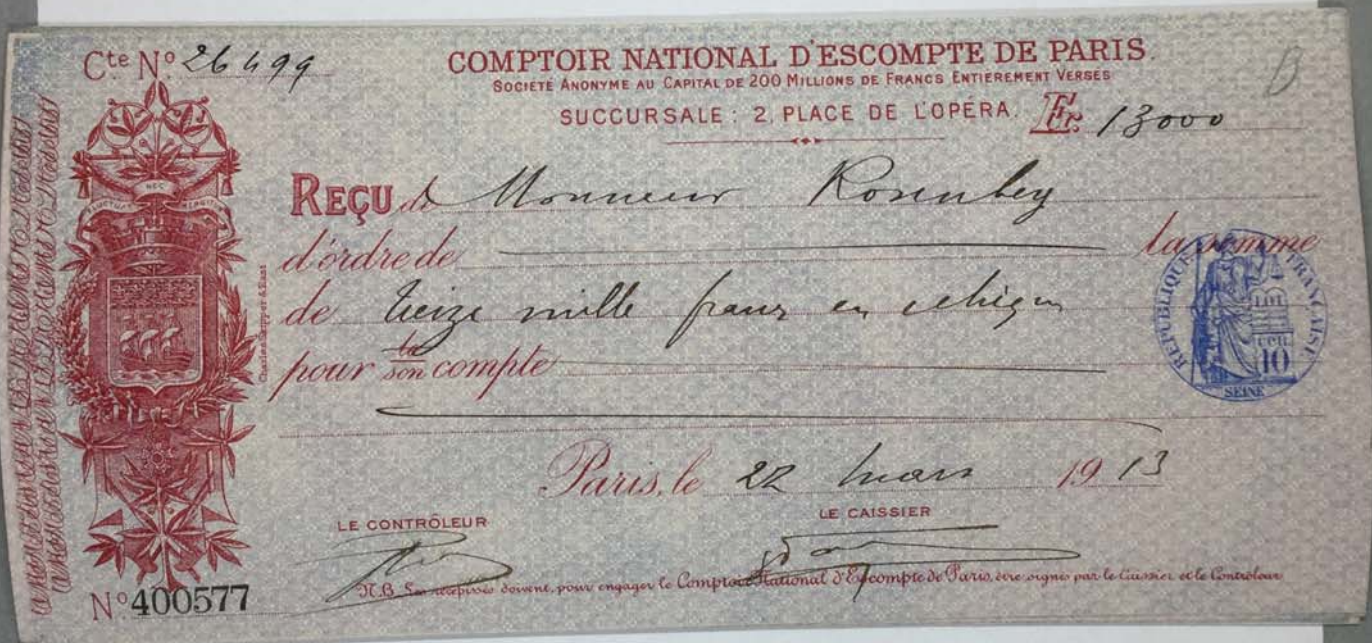 Cte No 26499
COMPTOIR NATIONAL D'ESCOMPTE DE PARIS.
SOCIÉTÉ ANONYME AU CAPITAL DE 200 MILLIONS DE FRANCS ENTIÈREMENT VERSÉS
SUCCURSALE : 2, PLACE DE L'OPÉRA. Fr. 13000
REÇU de Monsieur Rosenberg
d'ordre de la somme
de treize mille francs en chèque
pour son compte
Paris, le 22 mars 1913
LE CONTRÔLEUR
LE CAISSIER
N.B. Les récépissés doivent, pour engager le Comptoir National d'Escompte de Paris, être signés par le Caissier et le Contrôleur
No 400577
RÉPUBLIQUE FRANÇAISE
10
SEINE